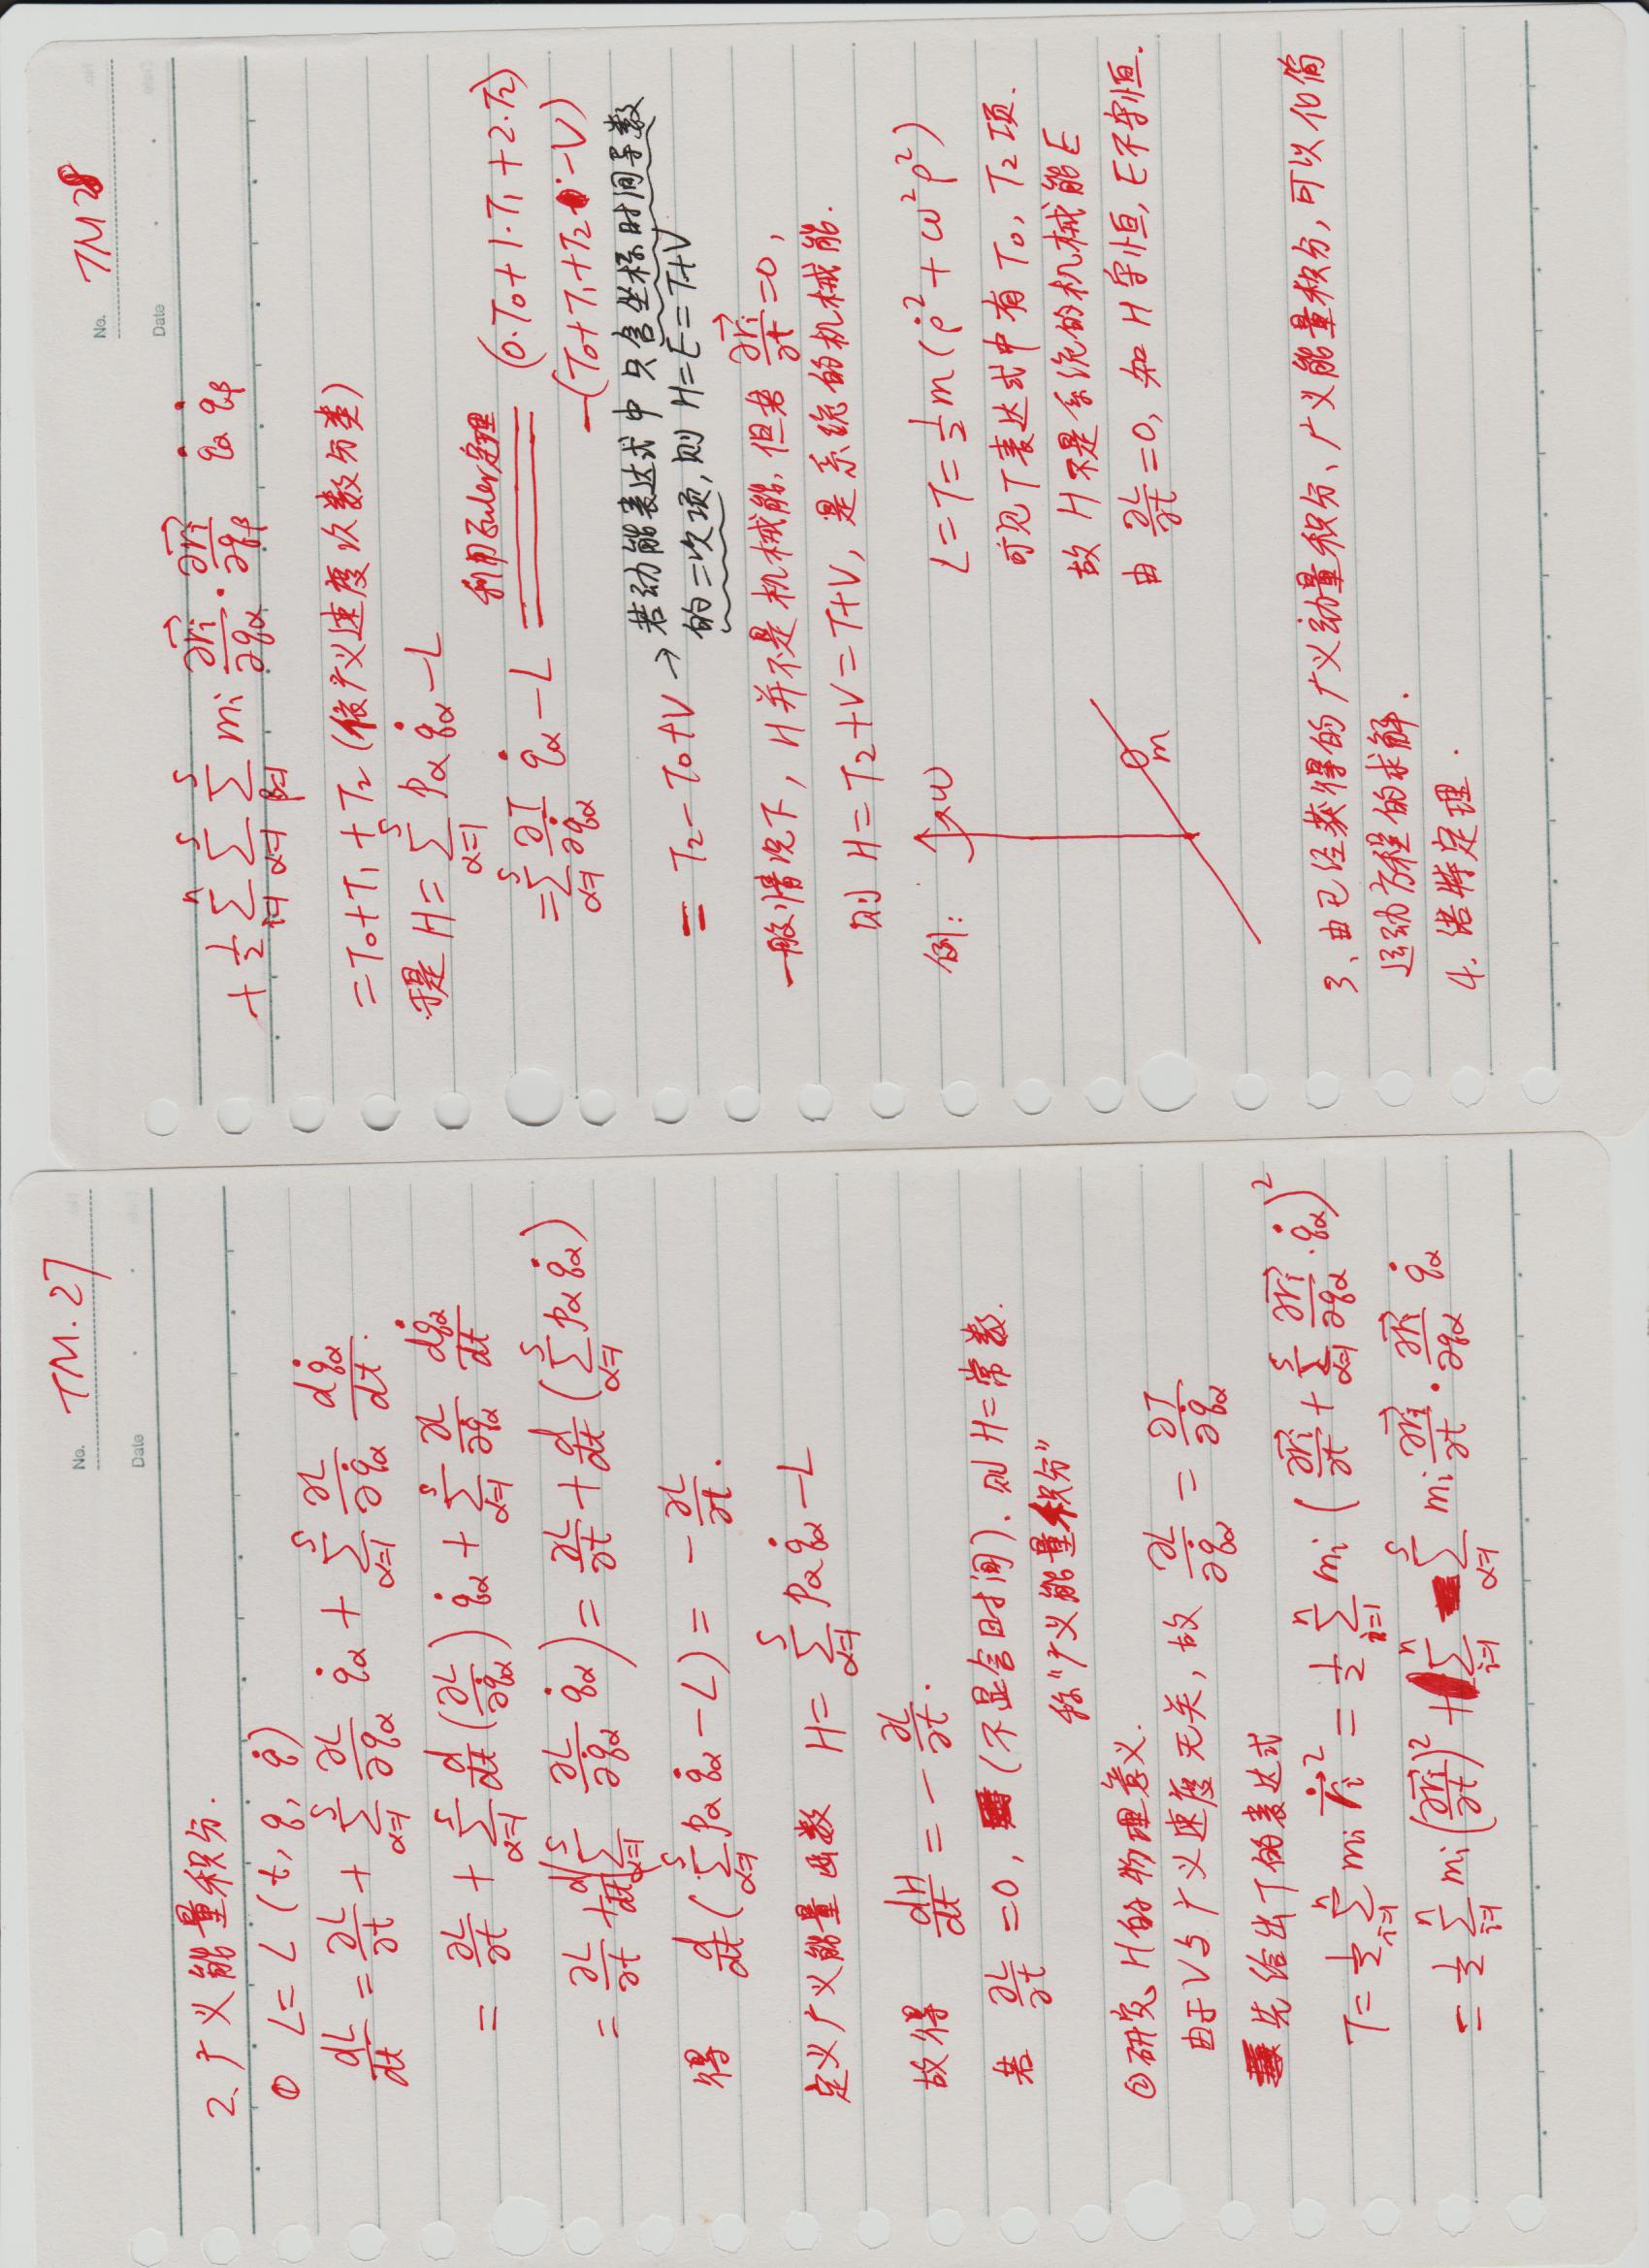 No. TM.27
Date
2、广义能量积分.
① L = L (t, q, q̇)
dL/dt = ∂L/∂t + Σ_{α=1}^{s} ∂L/∂qα q̇α + Σ_{α=1}^{s} ∂L/∂q̇α dq̇α/dt.
= ∂L/∂t + Σ_{α=1}^{s} d/dt (∂L/∂q̇α) q̇α + Σ_{α=1}^{s} ∂L/∂q̇α dq̇α/dt
= ∂L/∂t + d/dt (Σ_{α=1}^{s} ∂L/∂q̇α q̇α) = ∂L/∂t + d/dt (Σ_{α=1}^{s} pα q̇α)
得 d/dt (Σ_{α=1}^{s} pα q̇α − L) = − ∂L/∂t.
定义广义能量函数 H = Σ_{α=1}^{s} pα q̇α − L
故得 dH/dt = − ∂L/∂t.
若 ∂L/∂t = 0, (不显含时间). 则 H = 常数.
称“广义能量积分”
② 研究 H 的物理意义.
由于 V 与广义速度无关, 故 ∂L/∂q̇α = ∂T/∂q̇α
先给出 T 的表达式
T = 1/2 Σ_{i=1}^{n} mi ṙ⃗i² = 1/2 Σ_{i=1}^{n} mi (∂r⃗i/∂t + Σ_{α=1}^{s} ∂r⃗i/∂qα · q̇α)²
= 1/2 Σ_{i=1}^{n} mi (∂r⃗i/∂t)² + Σ_{i=1}^{n} Σ_{α=1}^{s} mi ∂r⃗i/∂t · ∂r⃗i/∂qα q̇α
No. TM28
Date
+ 1/2 Σ_{i=1}^{n} Σ_{α=1}^{s} Σ_{β=1}^{s} mi ∂r⃗i/∂qα · ∂r⃗i/∂qβ q̇α q̇β
= T₀ + T₁ + T₂ (依广义速度次数分类)
于是 H = Σ_{α=1}^{s} pα q̇α − L
= Σ_{α=1}^{s} ∂T/∂q̇α q̇α − L ══ 利用Euler定理 ══ (0·T₀ + 1·T₁ + 2·T₂)
− (T₀ + T₁ + T₂ − V)
= T₂ − T₀ + V → 若动能表达式中只含坐标时间导数
的二次项, 则 H = E = T + V
一般情况下, H 并不是机械能, 但若 ∂r⃗i/∂t = 0,
则 H = T₂ + V = T + V, 是系统的机械能.
例: ω m
L = T = 1/2 m (ρ̇² + ω²ρ²)
可见 T 表达式中有 T₀, T₂ 项.
故 H 不是系统的机械能 E
由 ∂L/∂t = 0, 知 H 守恒, E 不守恒.
3、由已经获得的广义动量积分、广义能量积分, 可以化简
运动方程的求解.
4. 诺特定理.